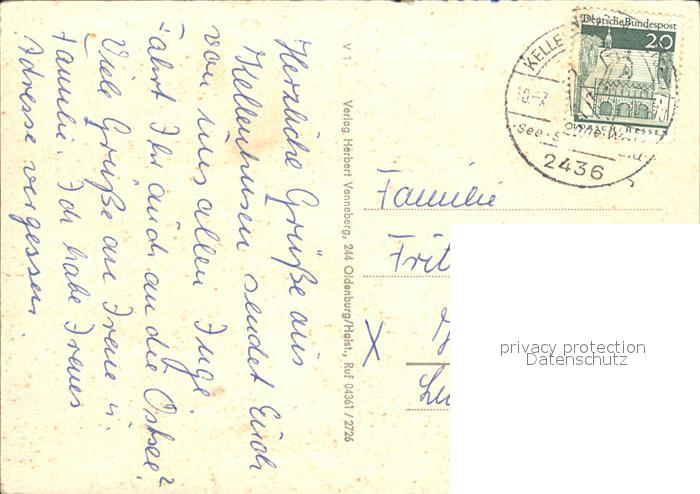 Herzliche Grüße aus
Kellenhusen sendet Euch
von uns allen Inge.
Fahrt Ihr auch an die Ostsee?
Viele Grüße an Irene u.
Familie. Ich habe Irenes
Adresse vergessen.
V 1
Verlag Herbert Venneberg, 244 Oldenburg/Holst., Ruf 04361 / 2726
Deutsche Bundespost
20
LORSCH/HESSEN
KELLE
10.-7.
See-
2436
Familie
Frit
X
privacy protection
Datenschutz